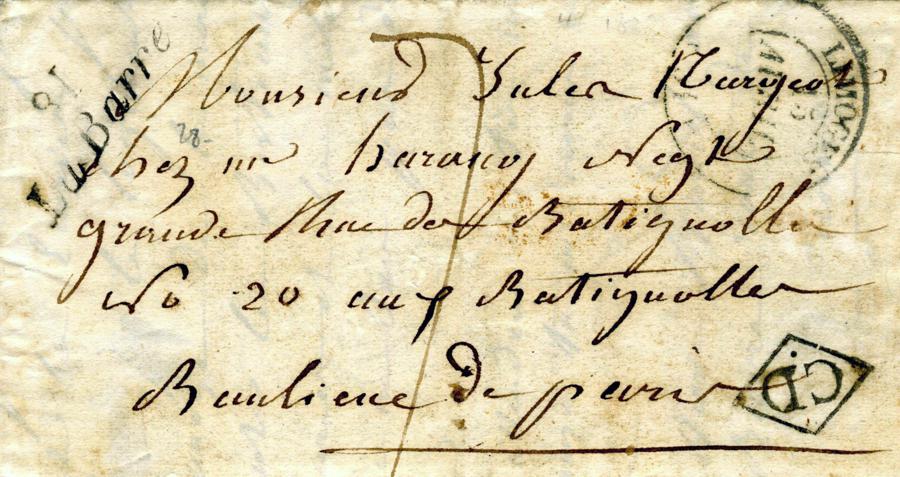 81
La Barre
LIMOGES
Monsieur Jules
28-
chez mr Negt
grande Rue des Batignolles
No 20 aux Batignolles
Banlieue de paris
C.D.